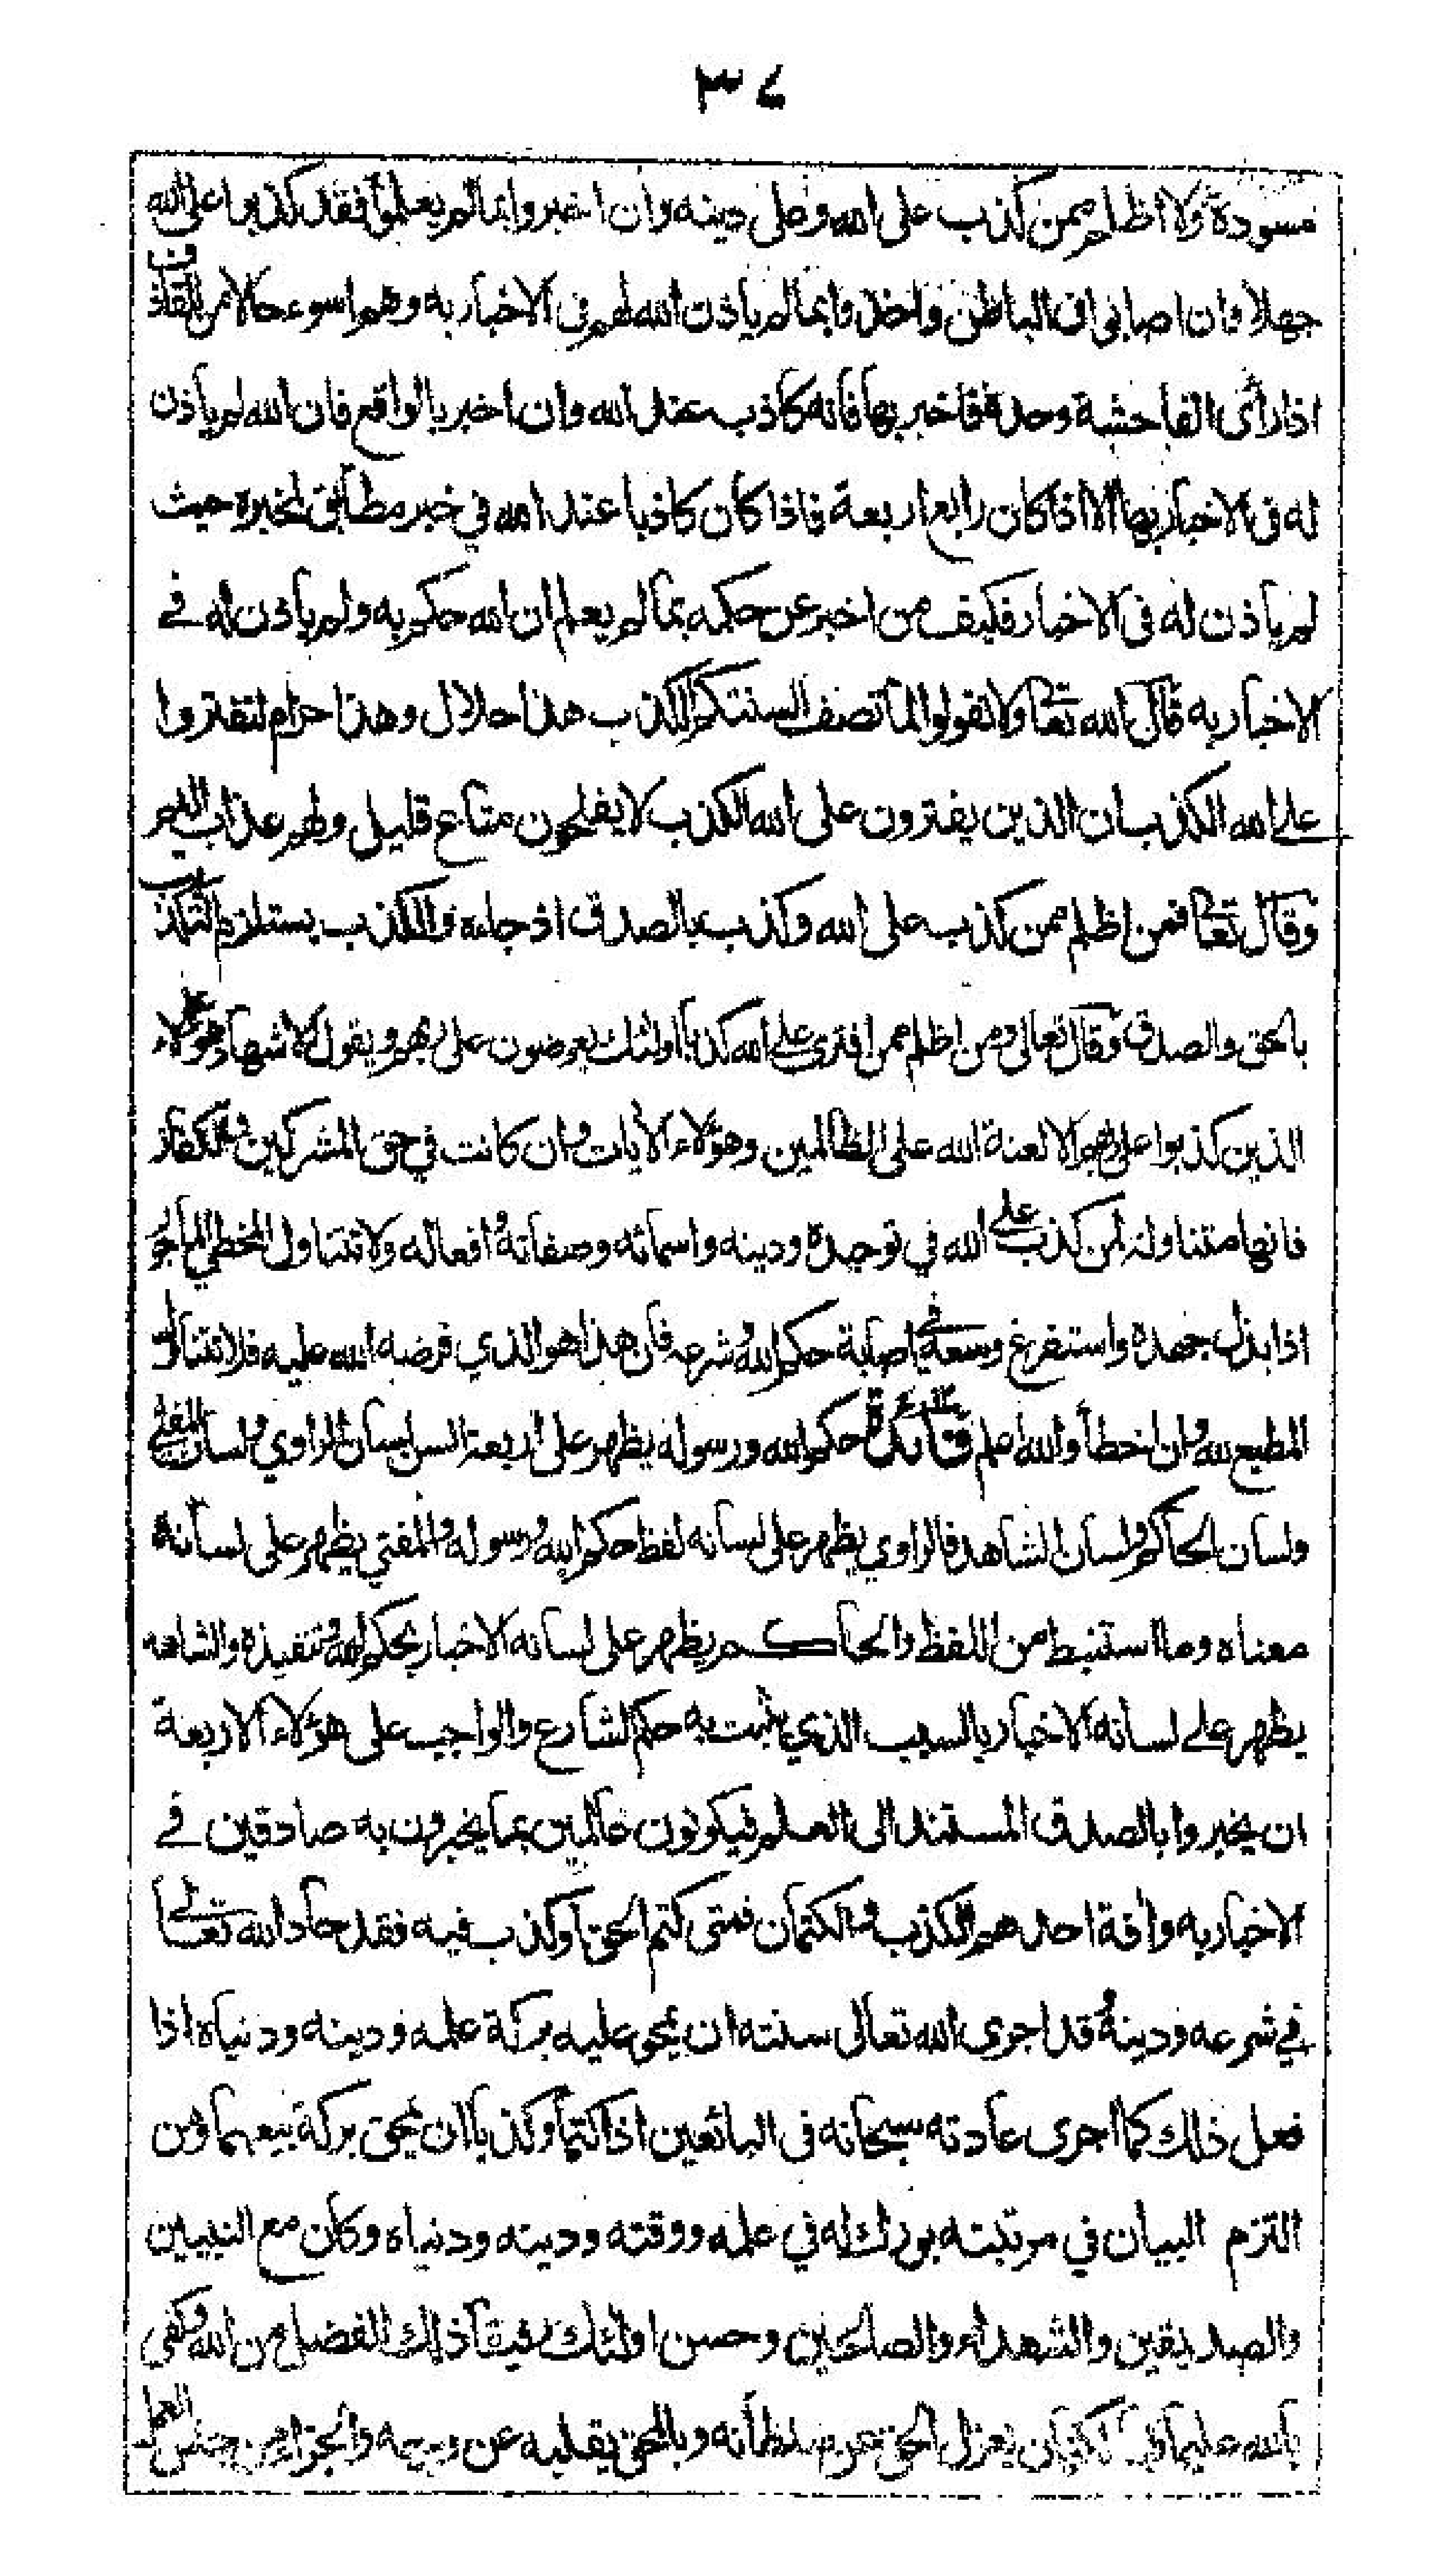 ٣٤
مسودة ولا اظلم ممن كذب على الله وعلى دينه وان اخبروا بما لم يعلموا فقد كذبوا على الله
جهلا وان اصابوا في الباطن واخبروا بما لم ياذن الله لهم فى الاخبار به وهم اسوء حالا من القاذف
اذا رأى الفاحشة وحده فاخبر بها فانه كاذب عند الله وان اخبر بالواقع فان الله لم ياذن
له فى الاخبار بها الا اذا كان رابع اربعة فاذا كان كاذبا عند الله في خبر مطابق لمخبره حيث
لم ياذن له فى الاخبار فكيف من اخبر عن حكمه بما لم يعلم ان الله حكم به ولم ياذن له في
الاخبار به قال الله تعا ولا تقولوا لما تصف السنتكم الكذب هذا حلال وهذا حرام لتفتروا
على الله الكذب ان الذين يفترون على الله الكذب لا يفلحون متاع قليل ولهم عذاب اليم
وقال تعا فمن اظلم ممن كذب على الله وكذب بالصدق اذ جاءه والكذب يستلزم التكذيب
بالحق والصدق وقال تعالى ومن اظلم ممن افترى على الله كذبا اولئك يعرضون على ربهم ويقول الاشهاد هؤلاء
الذين كذبوا على ربهم الا لعنة الله على الظالمين وهؤلاء الأيات وان كانت في حق المشركين والكفار
فانها متناولة لمن كذب على الله في توحيده ودينه واسمائه وصفاته وافعاله ولا تتناول المخطي الماجور
اذا بذل جهده واستفرغ وسعه في اصابة حكم الله وشرعه فان هذا هو الذي فرضه الله عليه فلا تتناول
المطيع لله وان اخطأ والله اعلم فائدة حكم الله ورسوله يظهر على اربعة السن لسان الراوي ولسان المفتي
ولسان الحاكم ولسان الشاهد فالراوي يظهر على لسانه لفظ حكم الله ورسوله والمفتي يظهر على لسانه
معناه وما استنبط من اللفظ والحاكم يظهر على لسانه الاخبار بحكم الله وتنفيذه والشاهد
يظهر على لسانه الاخبار بالسبب الذي يثبت به حكم الشارع والواجب على هؤلاء الاربعة
ان يخبروا بالصدق المستند الى العلم فيكونون عالمين بما يخبرون به صادقين في
الاخبار به وافة احدهم الكذب والكتمان فمتى كتم الحق او كذب فيه فقد حاد الله تعالى
في شرعه ودينه وقد اجرى الله تعالى سنته ان يمحق عليه بركة علمه ودينه ودنياه اذا
فعل ذلك كما اجرى عادته سبحانه فى البائعين اذا كتما وكذبا ان يمحق بركة بيعهما ومن
التزم البيان في مرتبته بورك له في علمه ووقته ودينه ودنياه وكان مع النبيين
والصديقين والشهداء والصالحين وحسن اولئك رفيقا ذلك الفضل من الله وكفى
بالله عليما فبالكتمان يعزل الحق عن سلطانه وبالكذب يقلبه عن وجهه والجزاء من جنس العمل